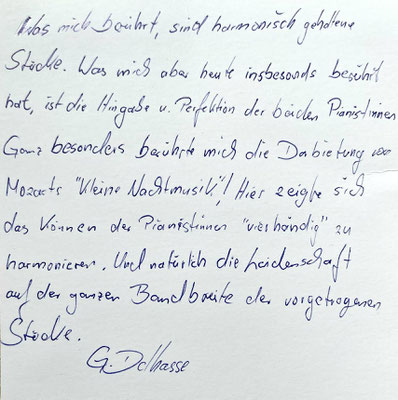 Was mich berührt, sind harmonisch gehaltene
Stücke. Was mich aber heute insbesonds berührt
hat, ist die Hingabe u. Perfektion der beiden Pianistinnen
Ganz besonders berührte mich die Dabietung von
Mozarts "Kleine Nachtmusik"! Hier zeigte sich
das Können der Pianistinnen "vierhändig" zu
harmonieren. Und natürlich die Leidenschaft
auf der ganzen Bandbreite der vorgetragenen
Stücke.
G. Dolhasse